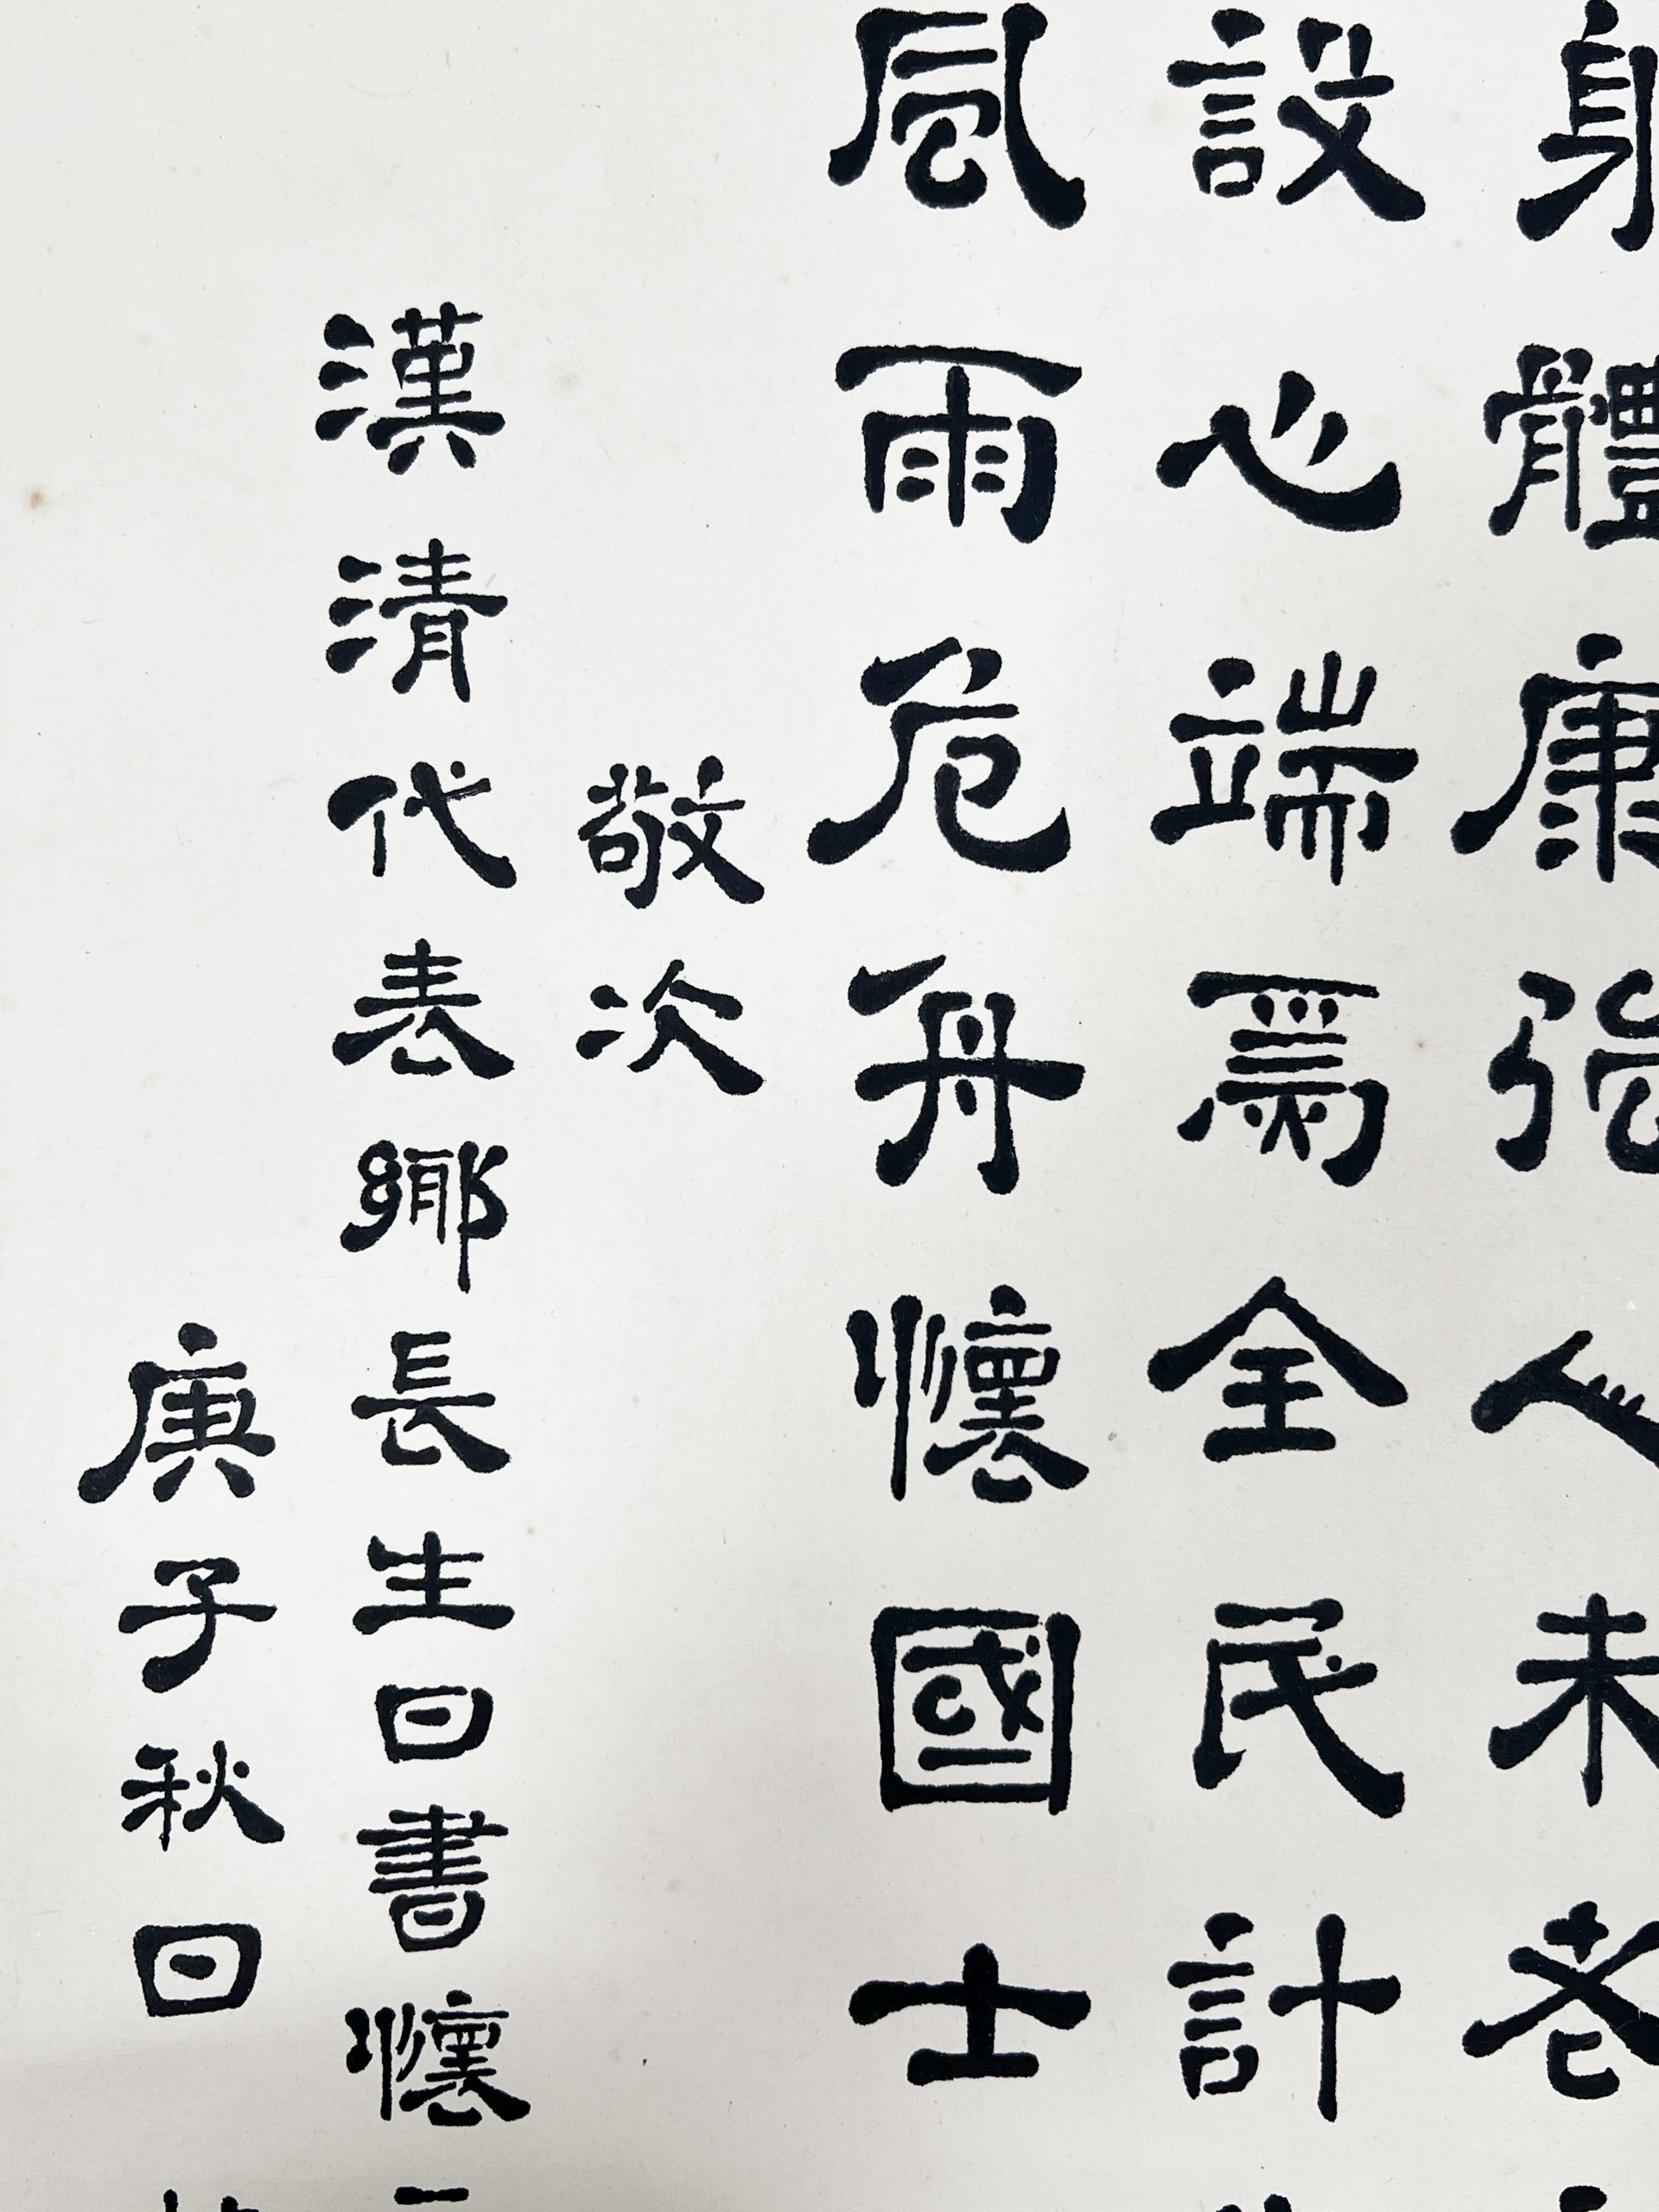 身體康強人未老
設心端為全民計
風雨危舟懷國士
敬次
漢清代表鄉長生日書懷
庚子秋日